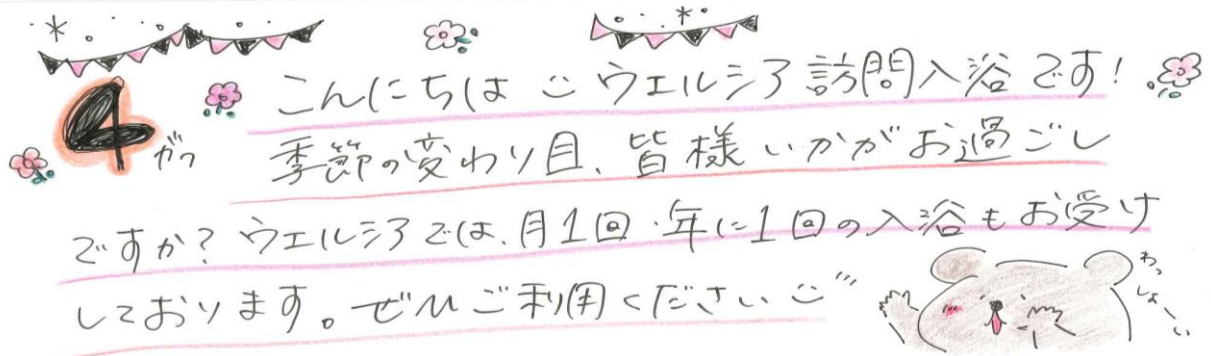 4がつ
こんにちは ウエルシア訪問入浴です!
季節の変わり目、皆様いかがお過ごし
ですか?ウエルシアでは、月1回・年に1回の入浴もお受け
しております。ぜひご利用ください
わっしょーい